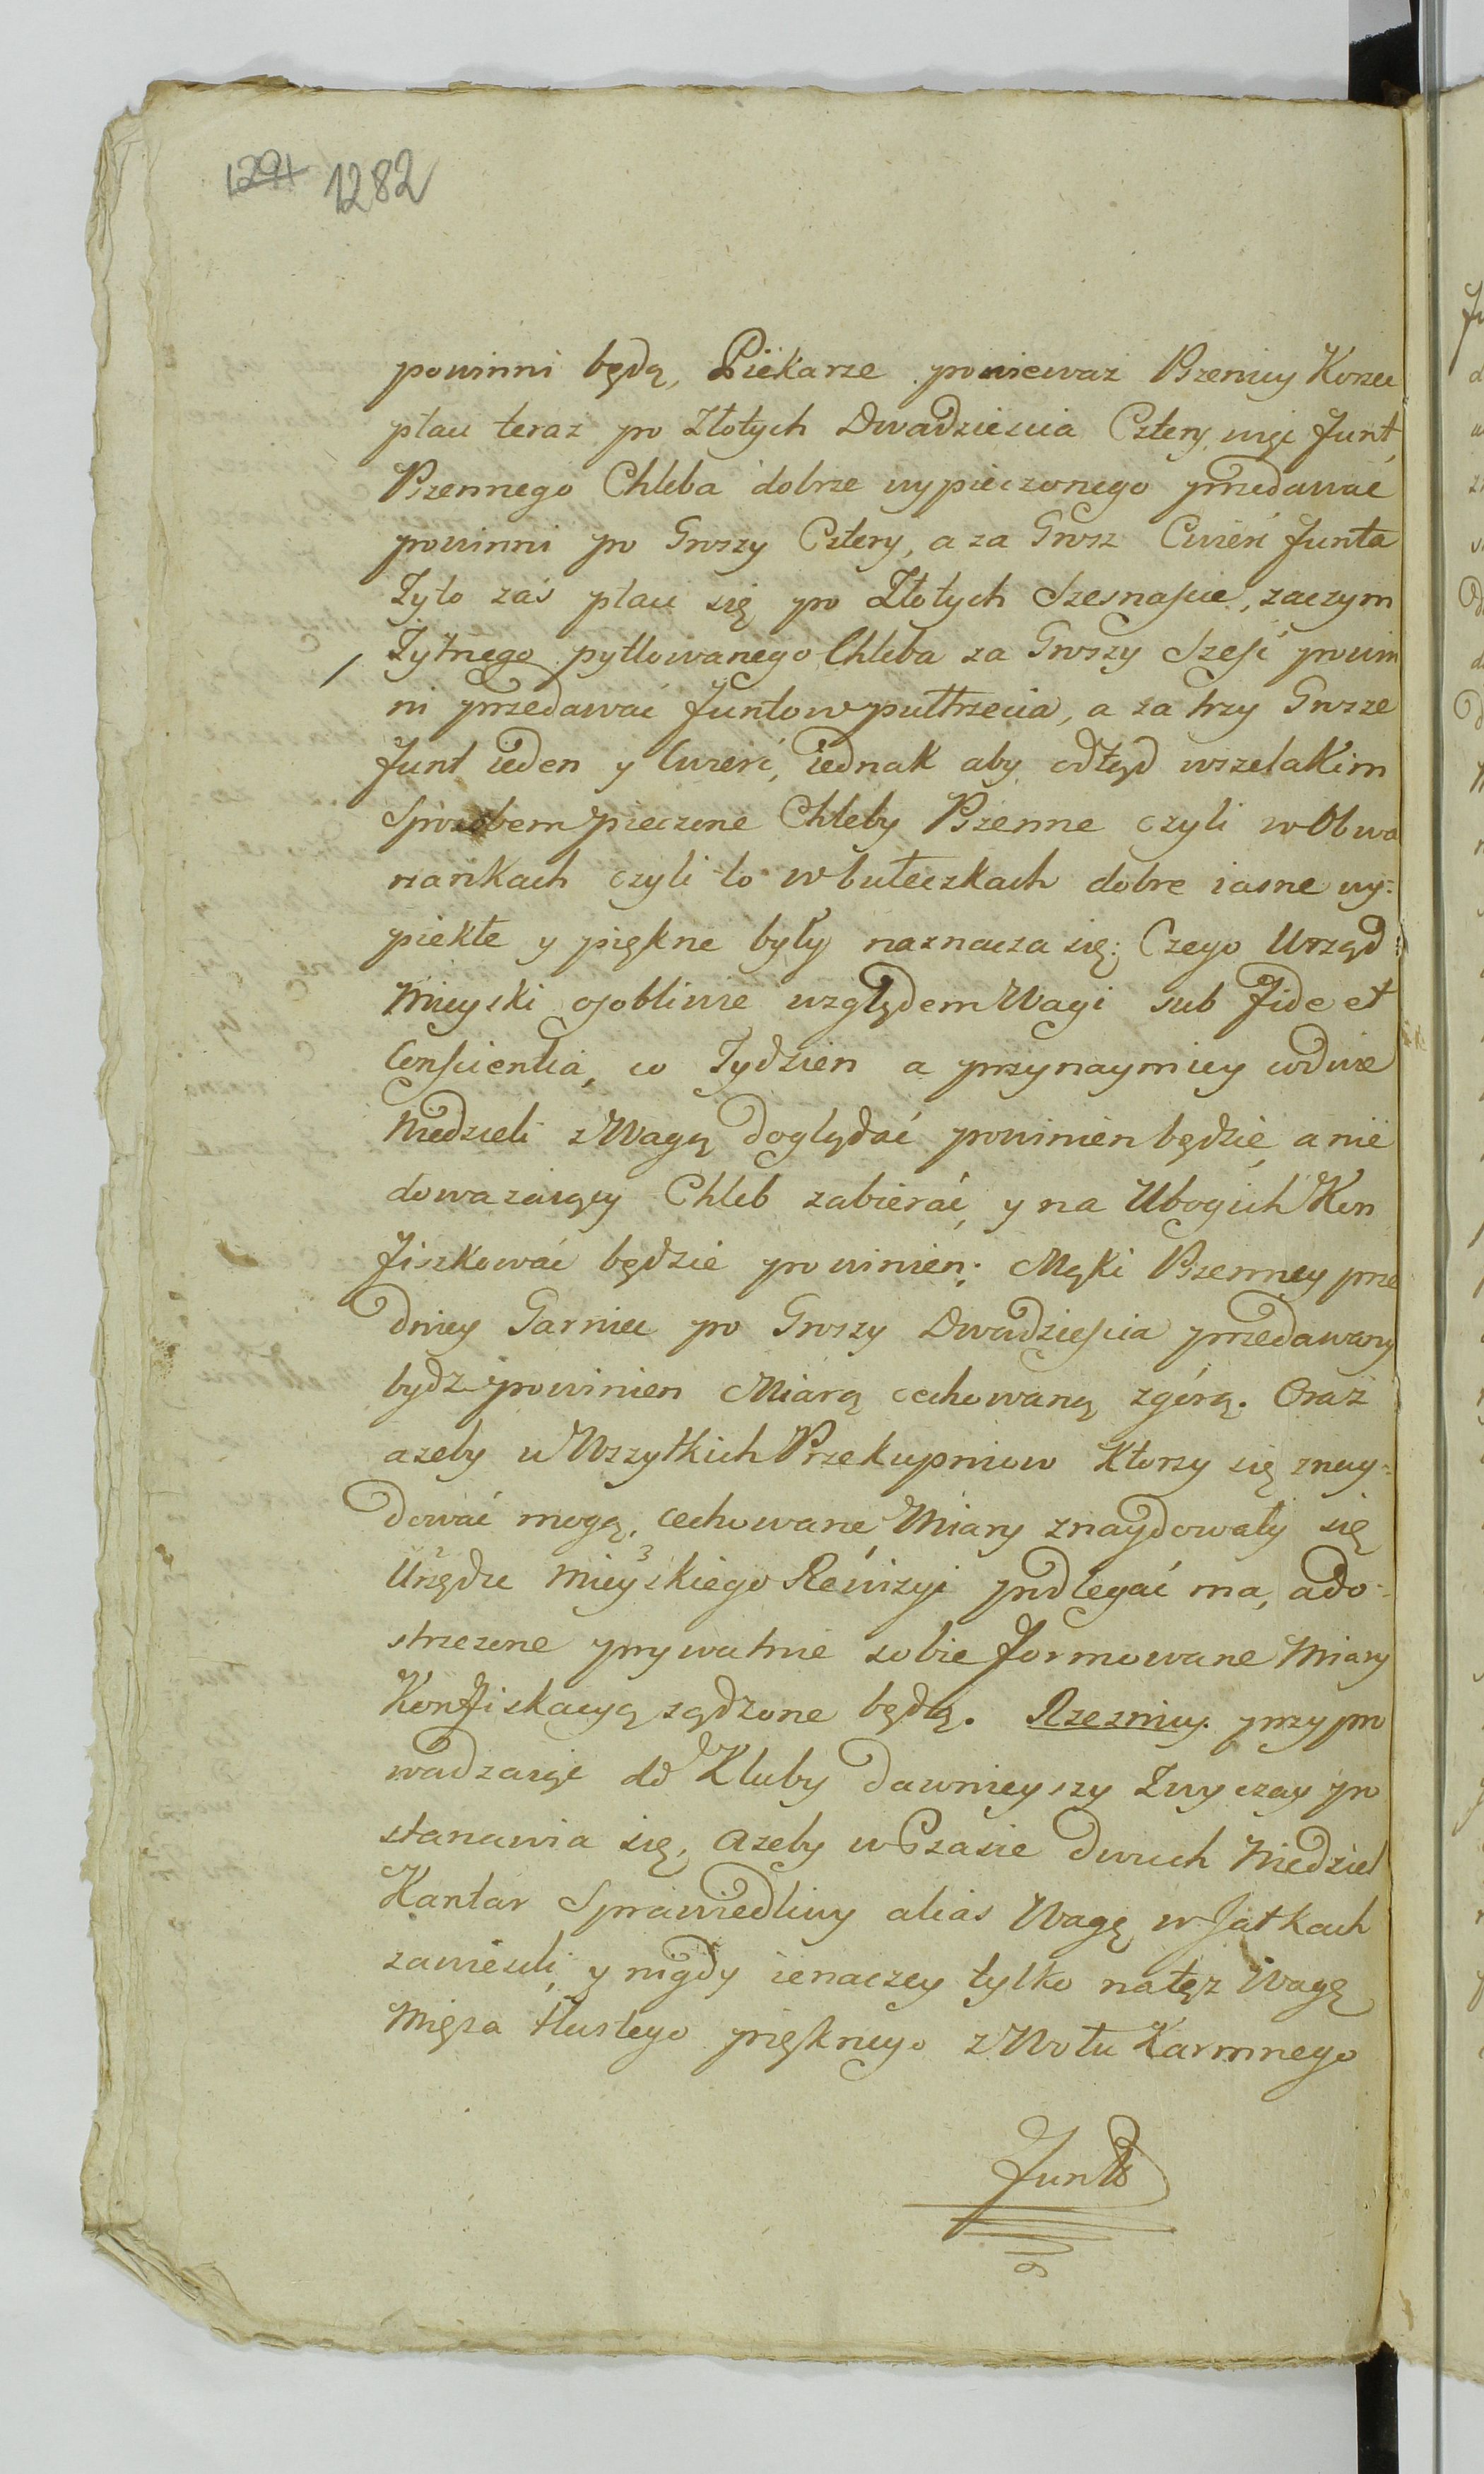 1294 1282
powinni będą, Piekarze ponieważ Pszenicy Korzec
płaci teraz po Złotych Dwadziescia Cztery, więc Funt
Pszennego Chleba dobrze wypieczonego przedawać
powinni po Groszy Cztery, a za Grosz Cwierć Funta
Zyto zaś płaci się po Złotych Szesnascie, zaczym
Zytnego pytlowanego Chleba za Groszy Szesć powin
ni przedawać Funtow pułtrzecia, a za trzy Grosze
Funt ieden y Cwierć, iednak aby odtąd wszelakim
Sposobem pieczone Chleby Pszenne czyli w Obwa
rzankach czyli to w bułeczkach dobre iasne wy-
piekłe y piękne były naznacza się: Czego Urząd
Mieyski osobliwie względem Wagi sub Fide et
Conscientia, co Tydzien a przynaymniey co dwie
Niedzieli z Wagą doglądać powinien będzie, a nie
doważaiący Chleb zabierać, y na Ubogich Kon
fiszkować będzie powinien; Mąki Pszenney prze
dniey Garniec po Groszy Dwadziescia przedawany
bydz powinien Miarą cechowaną z górą. Oraz
azeby u Wszytkich Przekupniow Ktorzy się znay-
dować mogą, cechowane Miary znaydowały się
Urzędu Mieyskiego Rewizyi podlegać ma, a do-
strzezone prywatnie sobie formowane Miary
Konfiskacyą sądzone będą. Rzeznicy przypro
wadzaiąc do Kluby dawnieyszy Zwyczay po
stanawia się, azeby w Czasie dwuch Niedziel
Kantar Sprawiedliwy alias Wagę w Jatkach
zawiesili, y nigdy ienaczey tylko na tęz Wagę
Mięsa tłustego pięknego z Wołu Karmnego
Funt